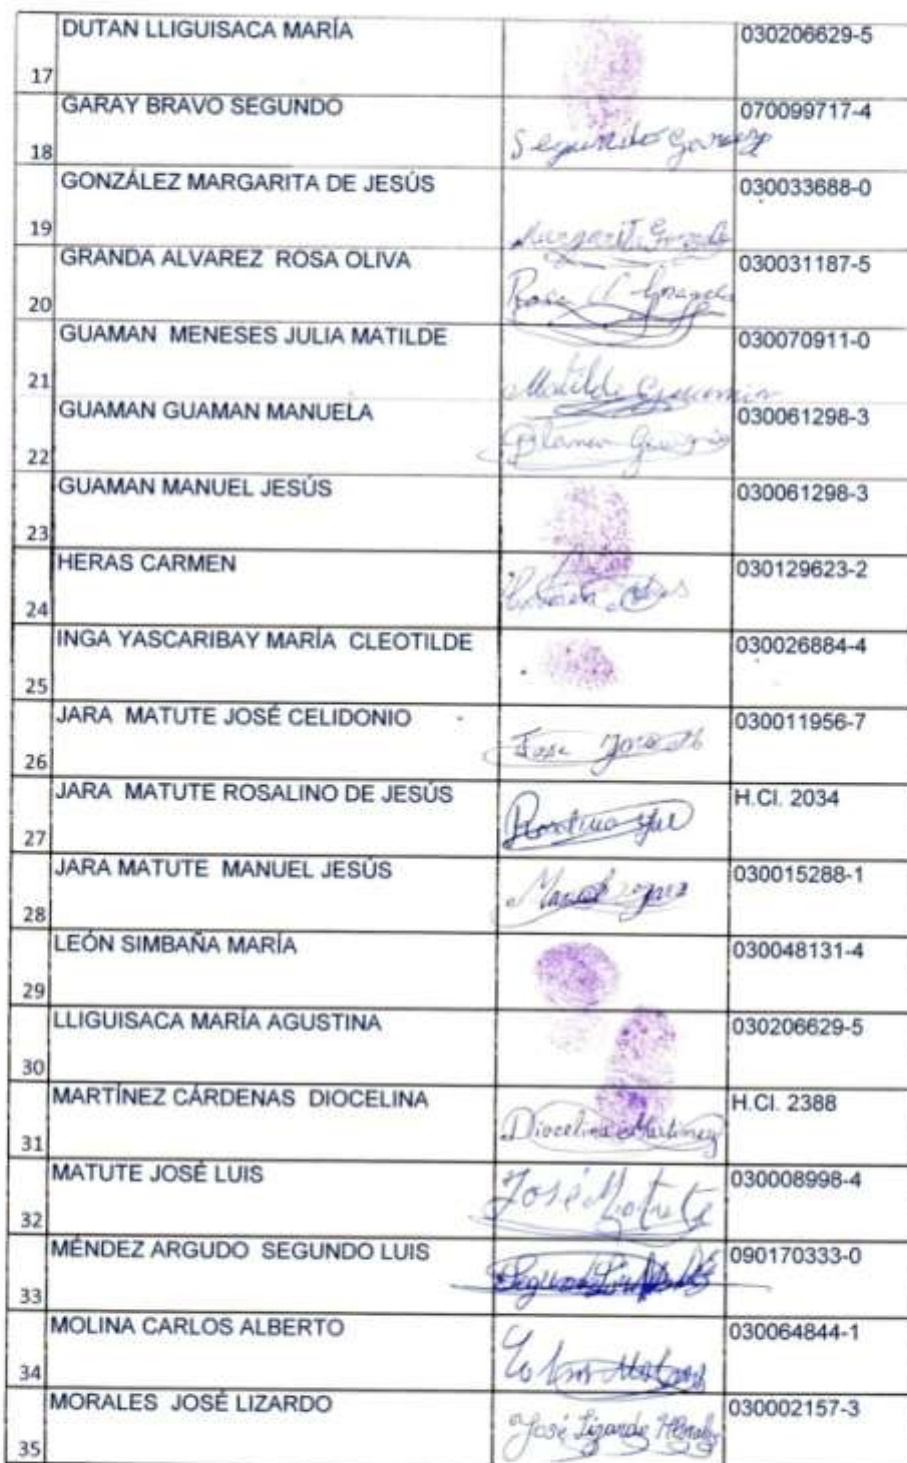 17 DUTAN LLIGUISACA MARÍA 030206629-5
18 GARAY BRAVO SEGUNDO Segundo Garay 070099717-4
19 GONZÁLEZ MARGARITA DE JESÚS Margarita 030033688-0
20 GRANDA ALVAREZ ROSA OLIVA Rosa O Granda 030031187-5
21 GUAMAN MENESES JULIA MATILDE Matilde Guaman 030070911-0
22 GUAMAN GUAMAN MANUELA Blanca 030061298-3
23 GUAMAN MANUEL JESÚS 030061298-3
24 HERAS CARMEN 030129623-2
25 INGA YASCARIBAY MARÍA CLEOTILDE 030026884-4
26 JARA MATUTE JOSÉ CELIDONIO Jose Jara 030011956-7
27 JARA MATUTE ROSALINO DE JESÚS H.Cl. 2034
28 JARA MATUTE MANUEL JESÚS Manuel 030015288-1
29 LEÓN SIMBAÑA MARÍA 030048131-4
30 LLIGUISACA MARÍA AGUSTINA 030206629-5
31 MARTÍNEZ CÁRDENAS DIOCELINA Diocelina Martinez H.Cl. 2388
32 MATUTE JOSÉ LUIS José Matute 030008998-4
33 MÉNDEZ ARGUDO SEGUNDO LUIS Segundo Luis 090170333-0
34 MOLINA CARLOS ALBERTO 030064844-1
35 MORALES JOSÉ LIZARDO José Lizardo Morales 030002157-3